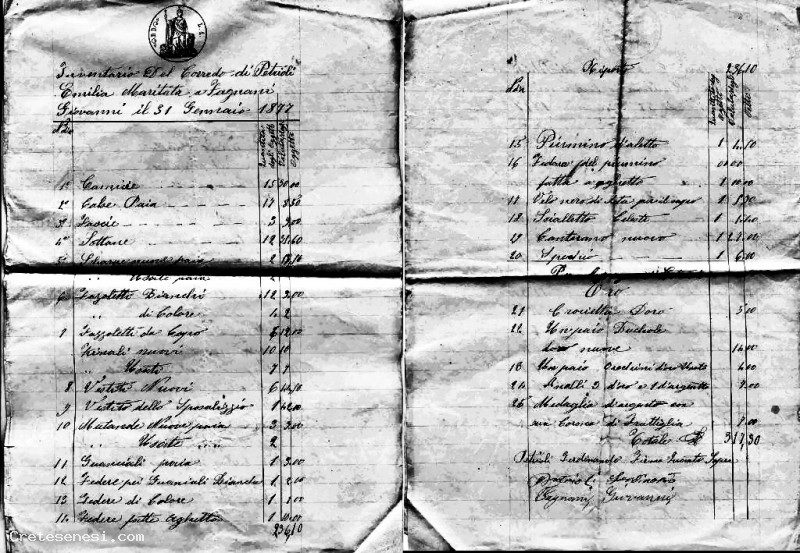 Inventario Del Corredo di Petrioli
Emilia Maritata a Fagnani
Giovanni il 31 Gennaio 1877
Quantità degli Oggetti
1° Camicie 15 30.00
2° Calze Paia 17
3° Fascie 3 3.00
4° Sottane 12 31.60
5 nuove paia 2
" Usate paia 2
6 Fazzoletti Bianchi 12 3.00
" di Colore 4 2
7 Fazzoletti da Capo 12.00
Grenali nuovi 10 10
" Usati 7 7
8 Vestiti Nuovi 6
9 Vestito dello Sposalizzio 1 42.00
10 Mutande Nuove paia 3 3.00
" Usate 2
11 Guanciali paia 1 3.00
12 Federe per Guanciali Bianche 1 2.00
13 Federe di Colore 1 1.00
14 Federe fatte Aghetto 1 10.00
236.10
Riporto 236.10
15 Piumino d'aletto 1 4.10
16 Federa del piumino
fatta a aghetto 1 10.00
Velo nero di seta per il capo 1
18 Scialletto Celeste 1
Canterano nuovo 1
20 Specchio 1 6.00
Oro
21 Crocietta Doro 5.00
22 Un paio Buchole
nuove 14.00
Un paio Orecchini doro Usate 4.00
24 Anelli 3 d'oro e 1 d'argento 9.00
25 Medaglia d'argento con
una Corona di 9.00
Totale £ 317.30
Petrioli Ferdinando
Fagnani Giovanni
Cretesenesi.com